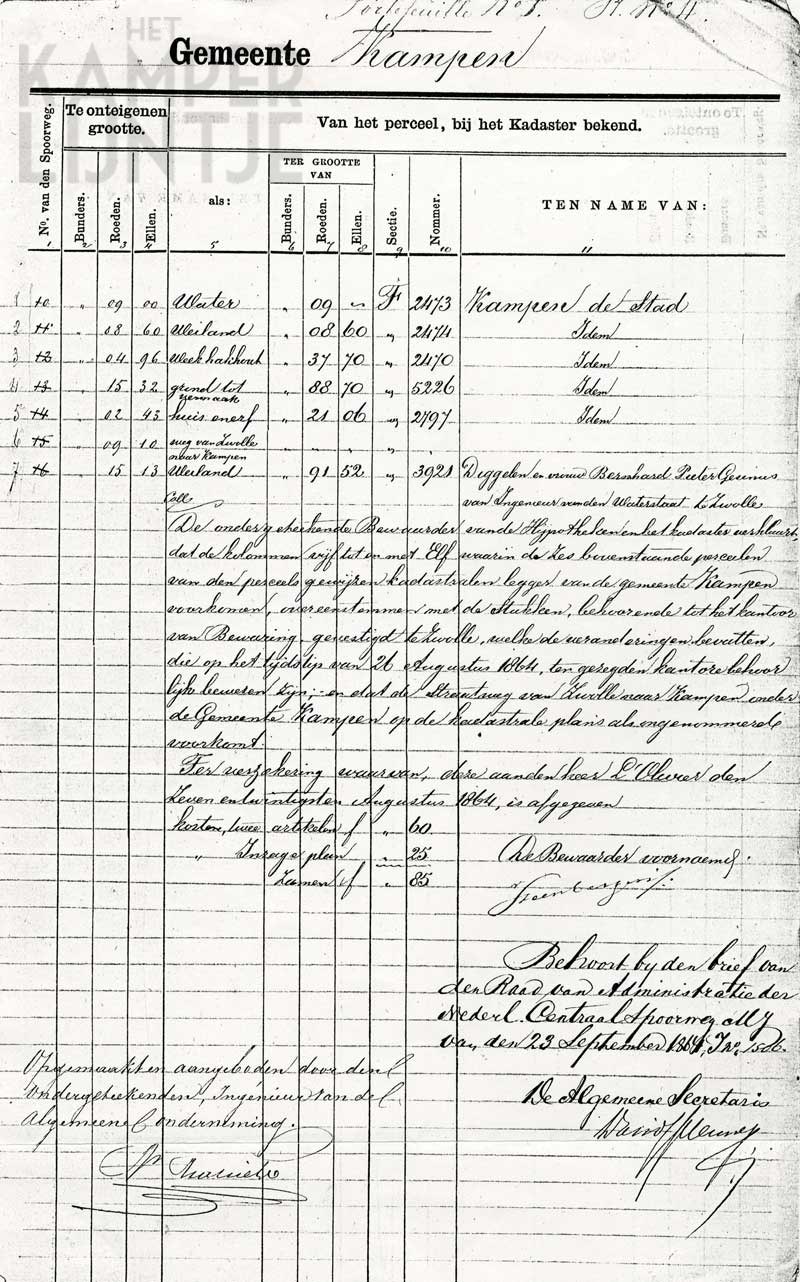 Portefeuille No. 8. St. No. 11
HET KAMPER LIJNTJE
Gemeente Kampen
No. van den Spoorweg.
Te onteigenen grootte.
Van het perceel, bij het Kadaster bekend.
Bunders. Roeden. Ellen. als: TER GROOTTE VAN Bunders. Roeden. Ellen. Sectie. Nommer. TEN NAME VAN:
1 2 3 4 5 6 7 8 9 10 11
1 10 „ 09 00 Water „ 09 „ F 2473 Kampen de Stad
2 11 „ 08 60 Weiland „ 08 60 „ 2474 Idem
3 12 „ 04 96 Week hakhout „ 37 70 „ 2470 Idem
4 13 „ 15 32 grind tot „ 88 70 „ 5226 Idem
5 14 „ 02 43 huis en erf „ 21 06 „ 2797 Idem
6 15 „ 09 10 weg van Zwolle „ „ „ „ „
naar Kampen
7 16 „ 15 13 Weiland „ 91 52 „ 3921 Diggelen en vrouw Bernhard Pieter Gesinus
Coll van Ingenieur van den Waterstaat te Zwolle
De ondergeteekende Bewaarder van de Hypotheken en het kadaster verklaart,
dat de kolommen vijf tot en met Elf waarin de Zes bovenstaande perceelen
van den perceelsgewijzen kadastralen legger van de gemeente Kampen
voorkomen, overeenstemmen met de Stukken, behoorende tot het kantoor
van Bewaring, gevestigd te Zwolle, welke de veranderingen bevatten,
die op het tijdstip van 26 Augustus 1864, ten gezegden kantore behoor
lijk bewezen zijn; en dat de Straatweg van Zwolle naar Kampen onder
de Gemeente Kampen op de kadastrale plans als ongenommerd
voorkomt.
Ter verzekering waarvan, deze aan den heer L'Olivier den
Zeven entwintigsten Augustus 1864, is afgegeven
kosten, twee artikelen f „ 60
„ Inzage plan „ 25 De Bewaarder voornoemd.
Zamen f „ 85
Behoort by den brief van
den Raad van Administratie der
Nederl. Centraal Spoorweg My
van den 23 September 1864, No. 1506.
Opgemaakt en aangeboden door den
ondergeteekenden, Ingenieur van de
Algemeene onderneming.
De Algemeene Secretaris